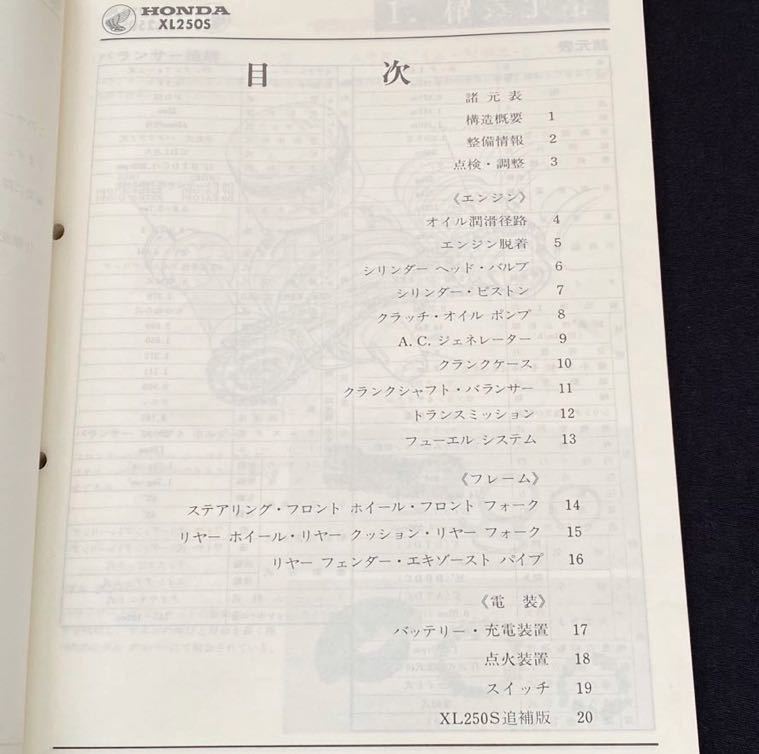 HONDA
XL250S
目 次
諸元表
構造概要 1
整備情報 2
点検・調整 3
《エンジン》
オイル潤滑径路 4
エンジン脱着 5
シリンダー ヘッド・バルブ 6
シリンダー・ピストン 7
クラッチ・オイル ポンプ 8
A.C.ジェネレーター 9
クランクケース 10
クランクシャフト・バランサー 11
トランスミッション 12
フューエル システム 13
《フレーム》
ステアリング・フロント ホイール・フロント フォーク 14
リヤー ホイール・リヤー クッション・リヤー フォーク 15
リヤー フェンダー・エキゾースト パイプ 16
《電 装》
バッテリー・充電装置 17
点火装置 18
スイッチ 19
XL250S追補版 20